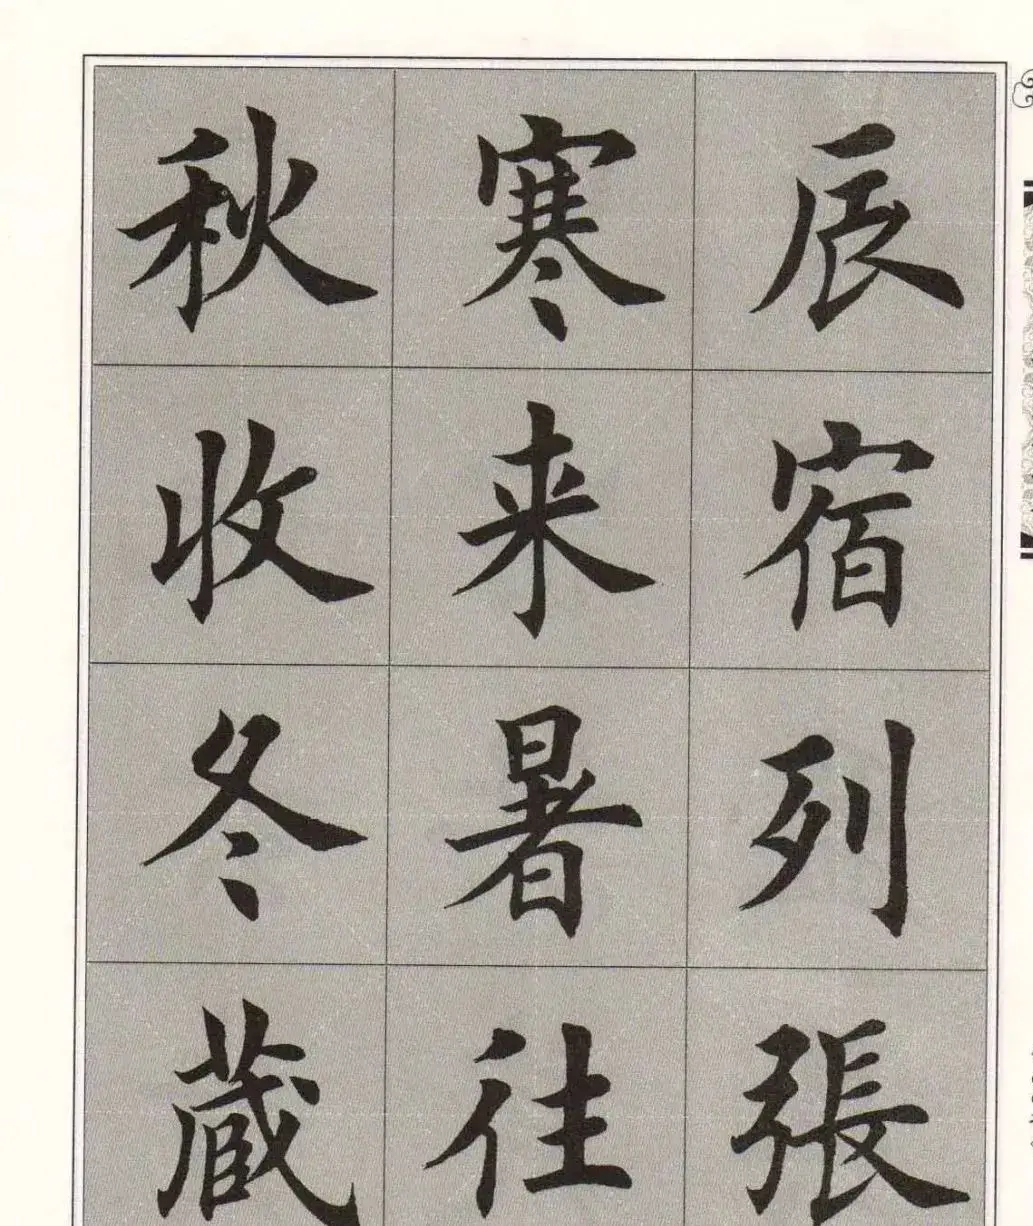 辰宿列張
寒来暑往
秋收冬蔵